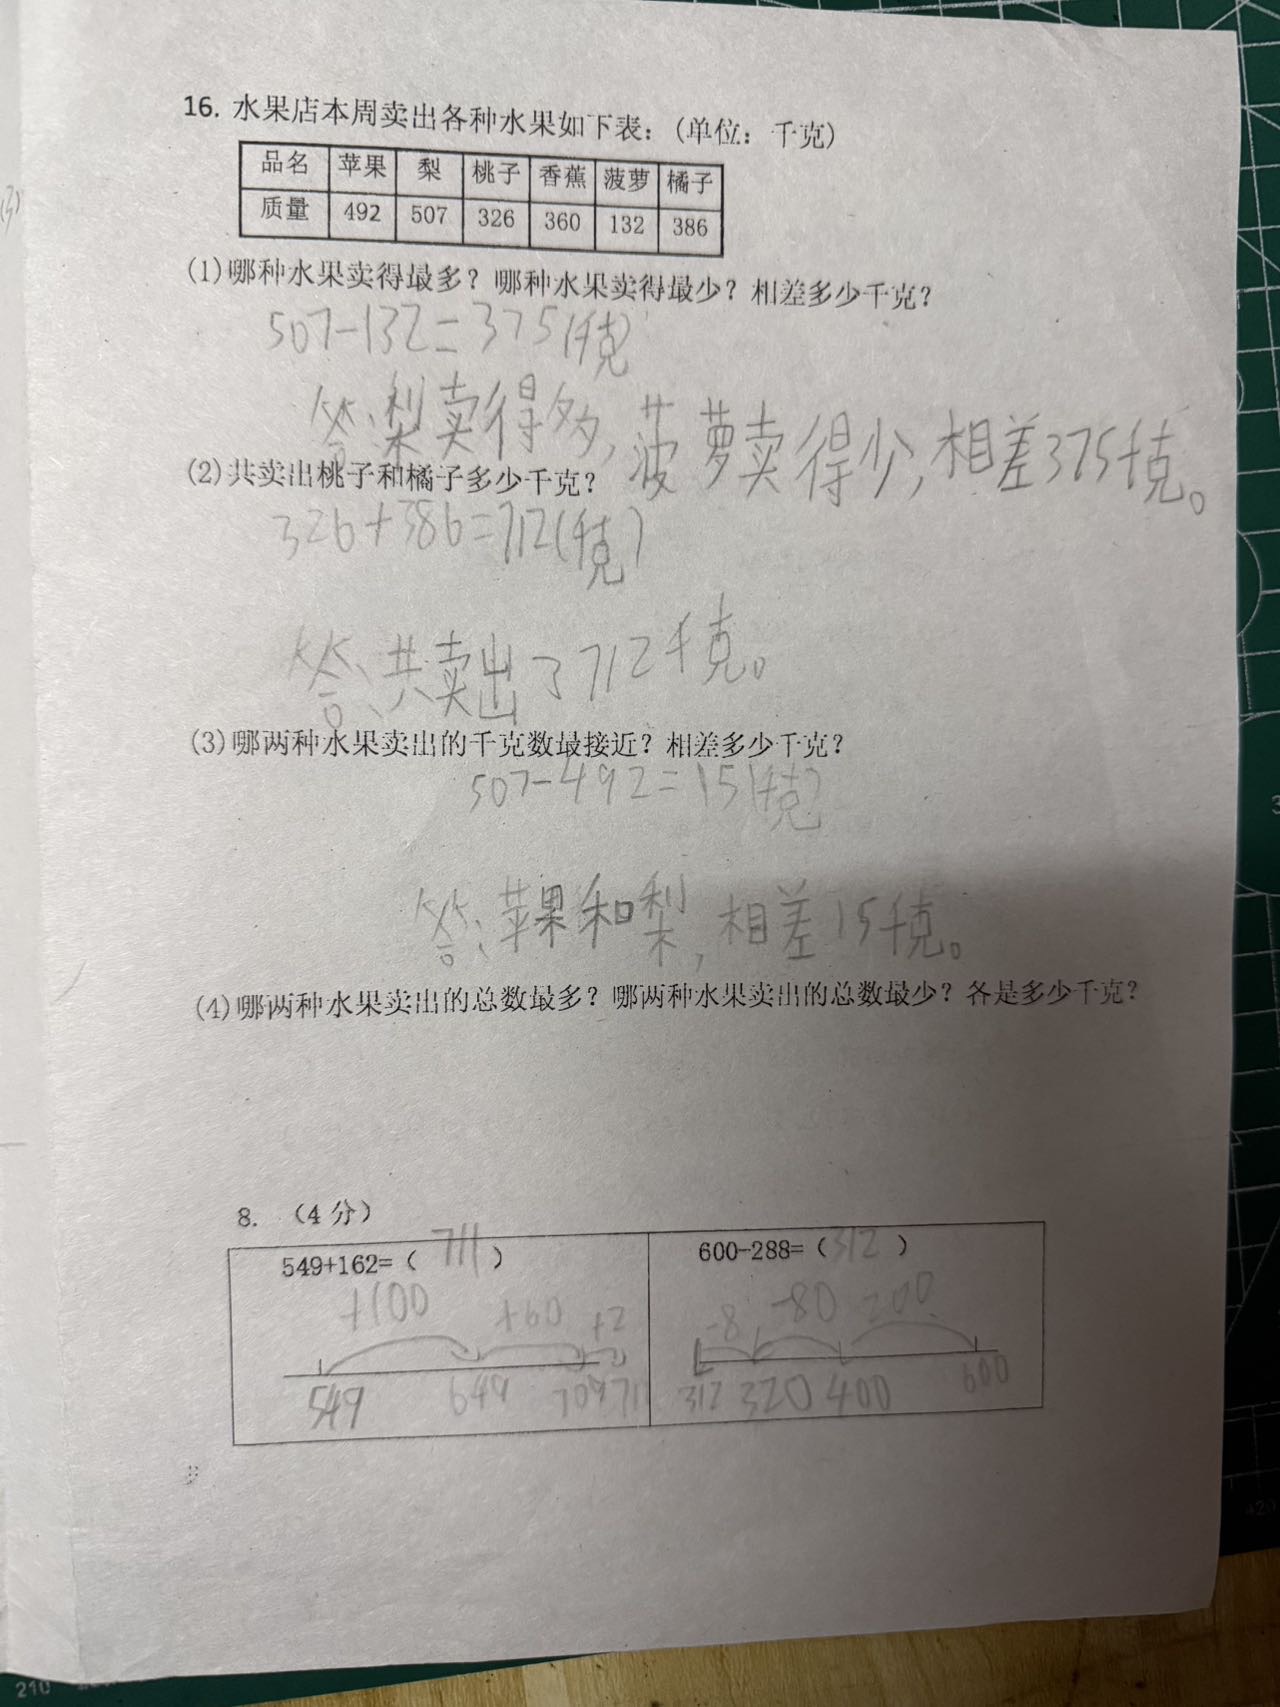 16. 水果店本周卖出各种水果如下表：(单位：千克)
品名 苹果 梨 桃子 香蕉 菠萝 橘子
质量 492 507 326 360 132 386
(1)哪种水果卖得最多？哪种水果卖得最少？相差多少千克？
507-132=375(千克)
答：梨卖得多，菠萝卖得少，相差375千克。
(2)共卖出桃子和橘子多少千克？
326+386=712(千克)
答：共卖出了712千克。
(3)哪两种水果卖出的千克数最接近？相差多少千克？
507-492=15(千克)
答：苹果和梨，相差15千克。
(4)哪两种水果卖出的总数最多？哪两种水果卖出的总数最少？各是多少千克？
8. （4分）
549+162=（711） 600-288=（312）
+100 +60 +2 -8 -80 200
549 649 709 711 312 320 400 600
210